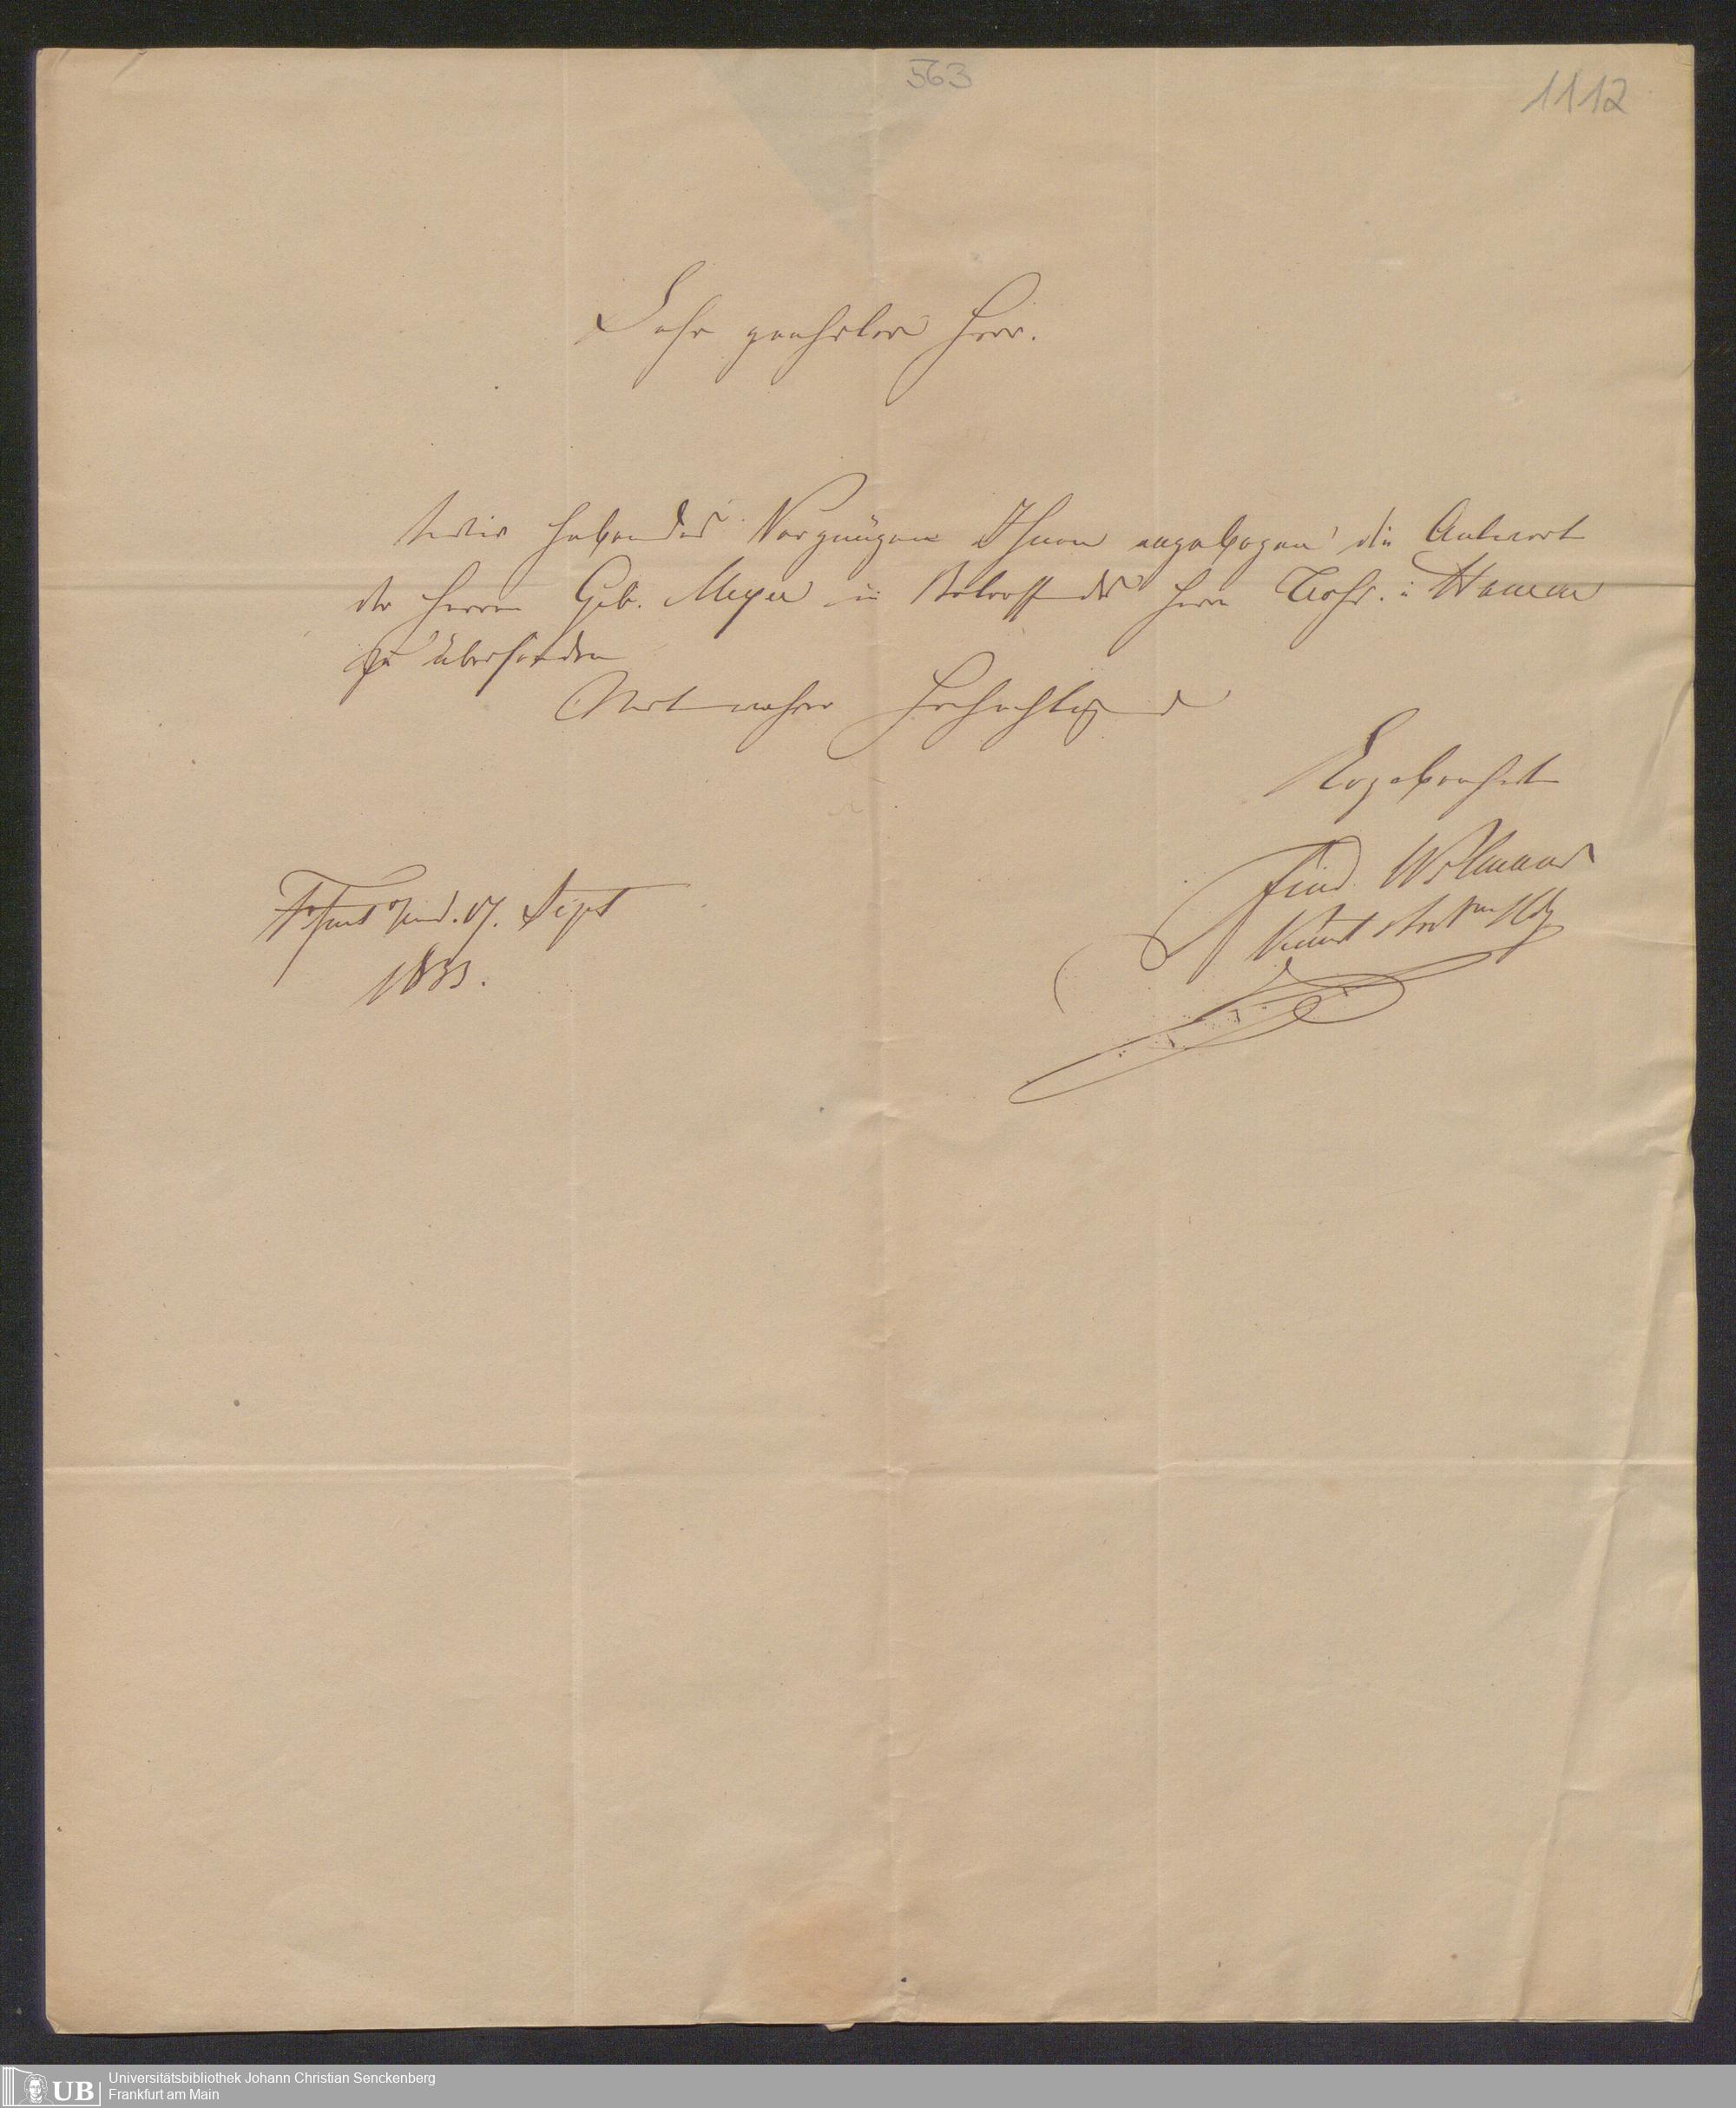 563
1112
Sehr geehrter Herr.
Wir haben das Vergnügen Ihnen angebogen die Antwort
der Herren Geb. Meyer in Betreff des Herrn i
zu übersenden
Mit wahrer Hochachtung
Ergebenheit
Ferd Wilmans
Kunst
Frkfurt 17. Sept
1833.
UB
Universitätsbibliothek Johann Christian Senckenberg
Frankfurt am Main